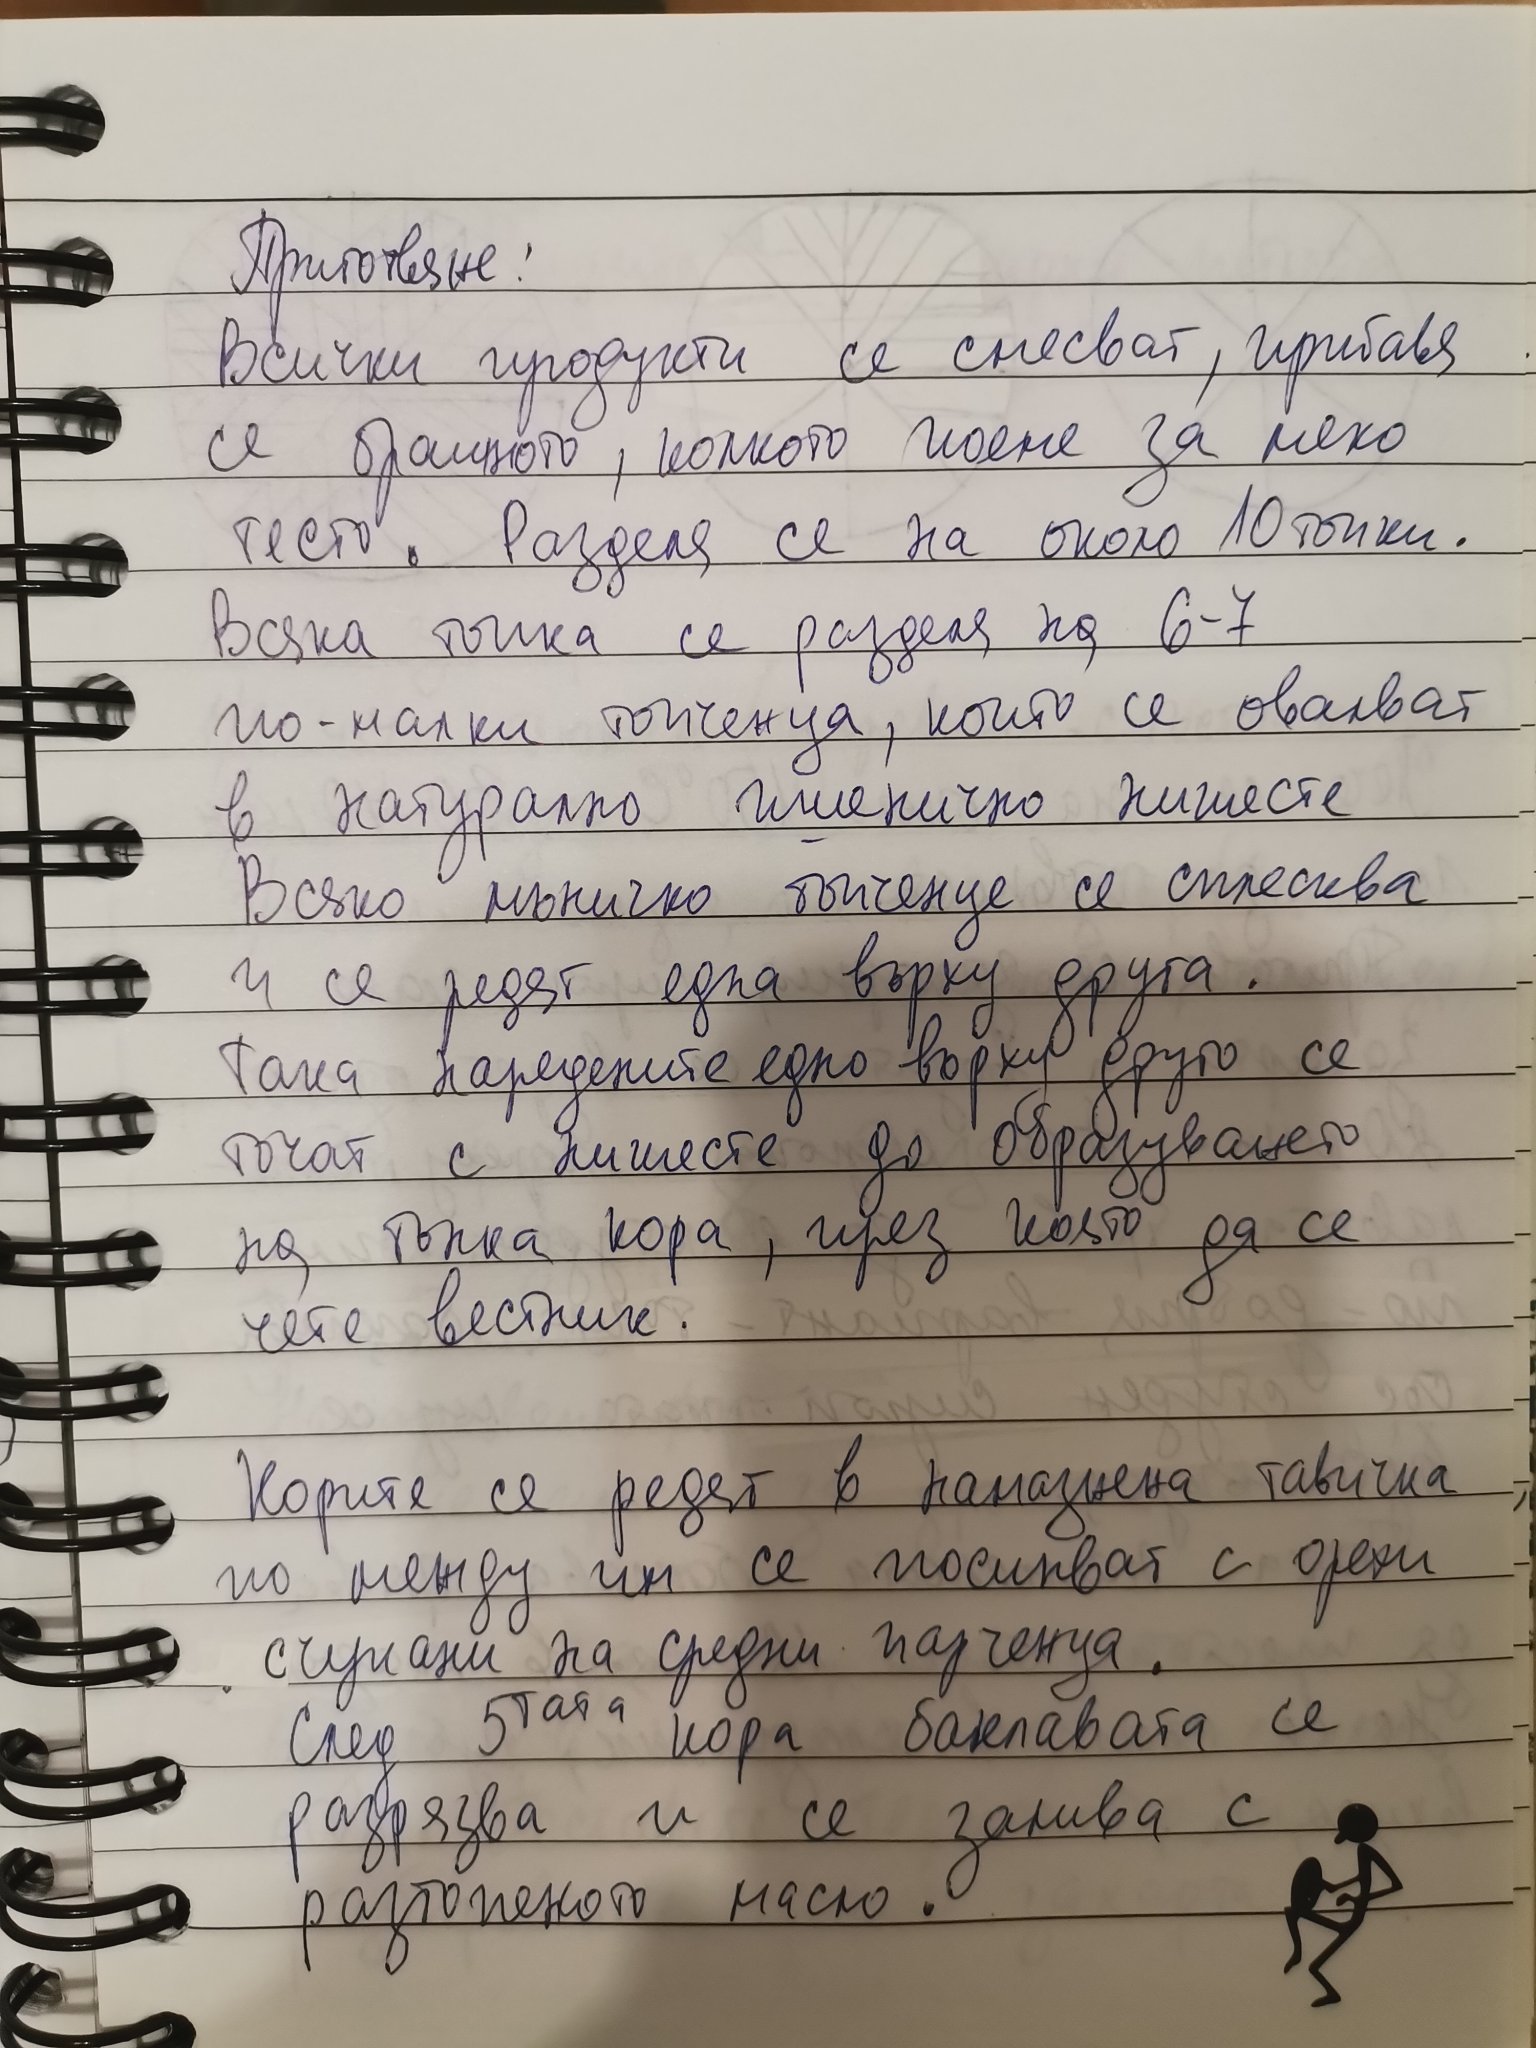 Приготвяне:
Всички продукти се смесват, прибавя
се брашното, колкото поеме за меко
тесто. Разделя се на около 10 топки.
Всяка топка се разделя на 6-7
по-малки топченца, които се овалват
в натурално пшенично нишесте
Всяко мъничко топченце се сплесква
и се редят една върху друга.
Така наредените едно върху друго се
точат с нишесте до образуването
на тънка кора, през която да се
чете вестник.
Корите се редят в намазнена тавичка
по между им се посипват с орехи
счукани на средни парченца.
След 5тата кора баклавата се
разрязва и се залива с
разтопеното масло.